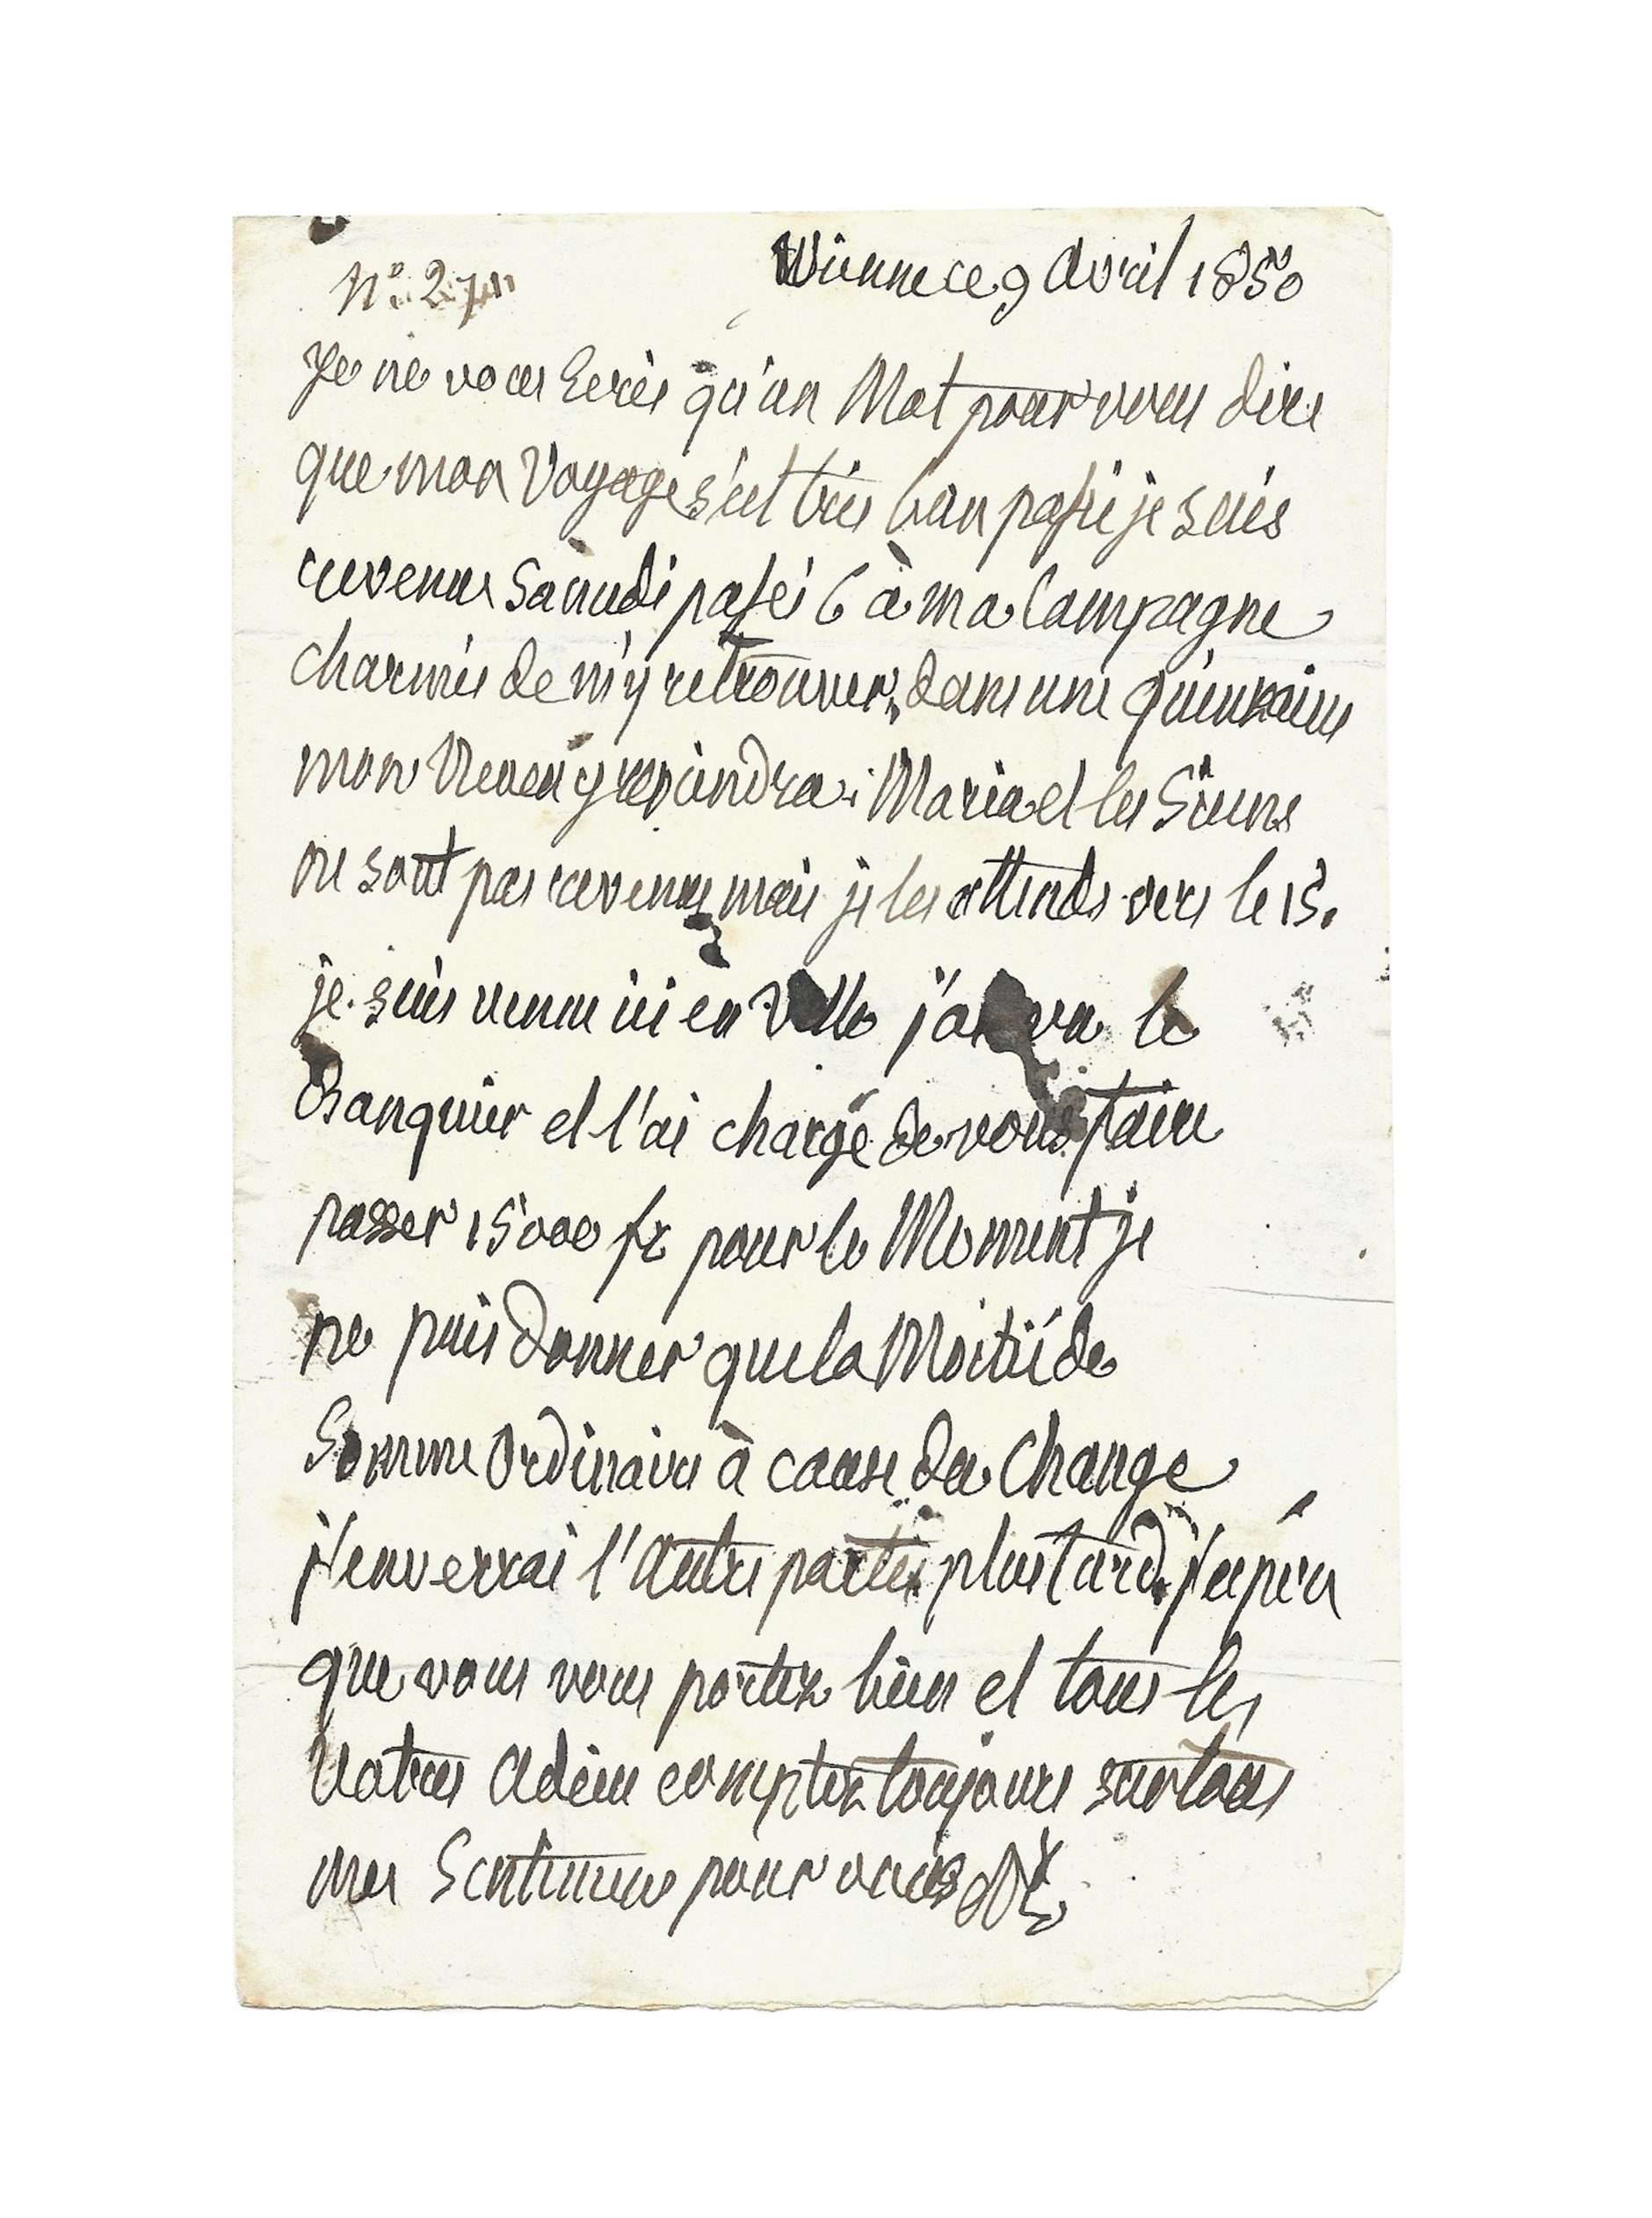 N.° 27
Vienne ce 9 Avril 1850
Je ne vous Ecris qu'un Mot pour vous dire
que mon Voyage s'est très bien passé je suis
revenus Samedi passé 6 à ma Campagne
charmée de m'y retrouver, dans une quinzaine
mon Neveu y rejoindra. Maria et les Siens
ne sont pas revenus mais je les attends vers le 15.
je suis venue ici en Ville j'ai vu le
Banquier et l'ai chargé de vous faire
passer 15000 fr pour le Moment je
ne puis donner que la Moitié de
Somme Ordinaire à cause du Change
j'enverrai l'Autre partie plus tard, j'espère
que vous vous portez bien et tous les
Votres Adieu comptez toujours sur tous
mes Sentimens pour vous